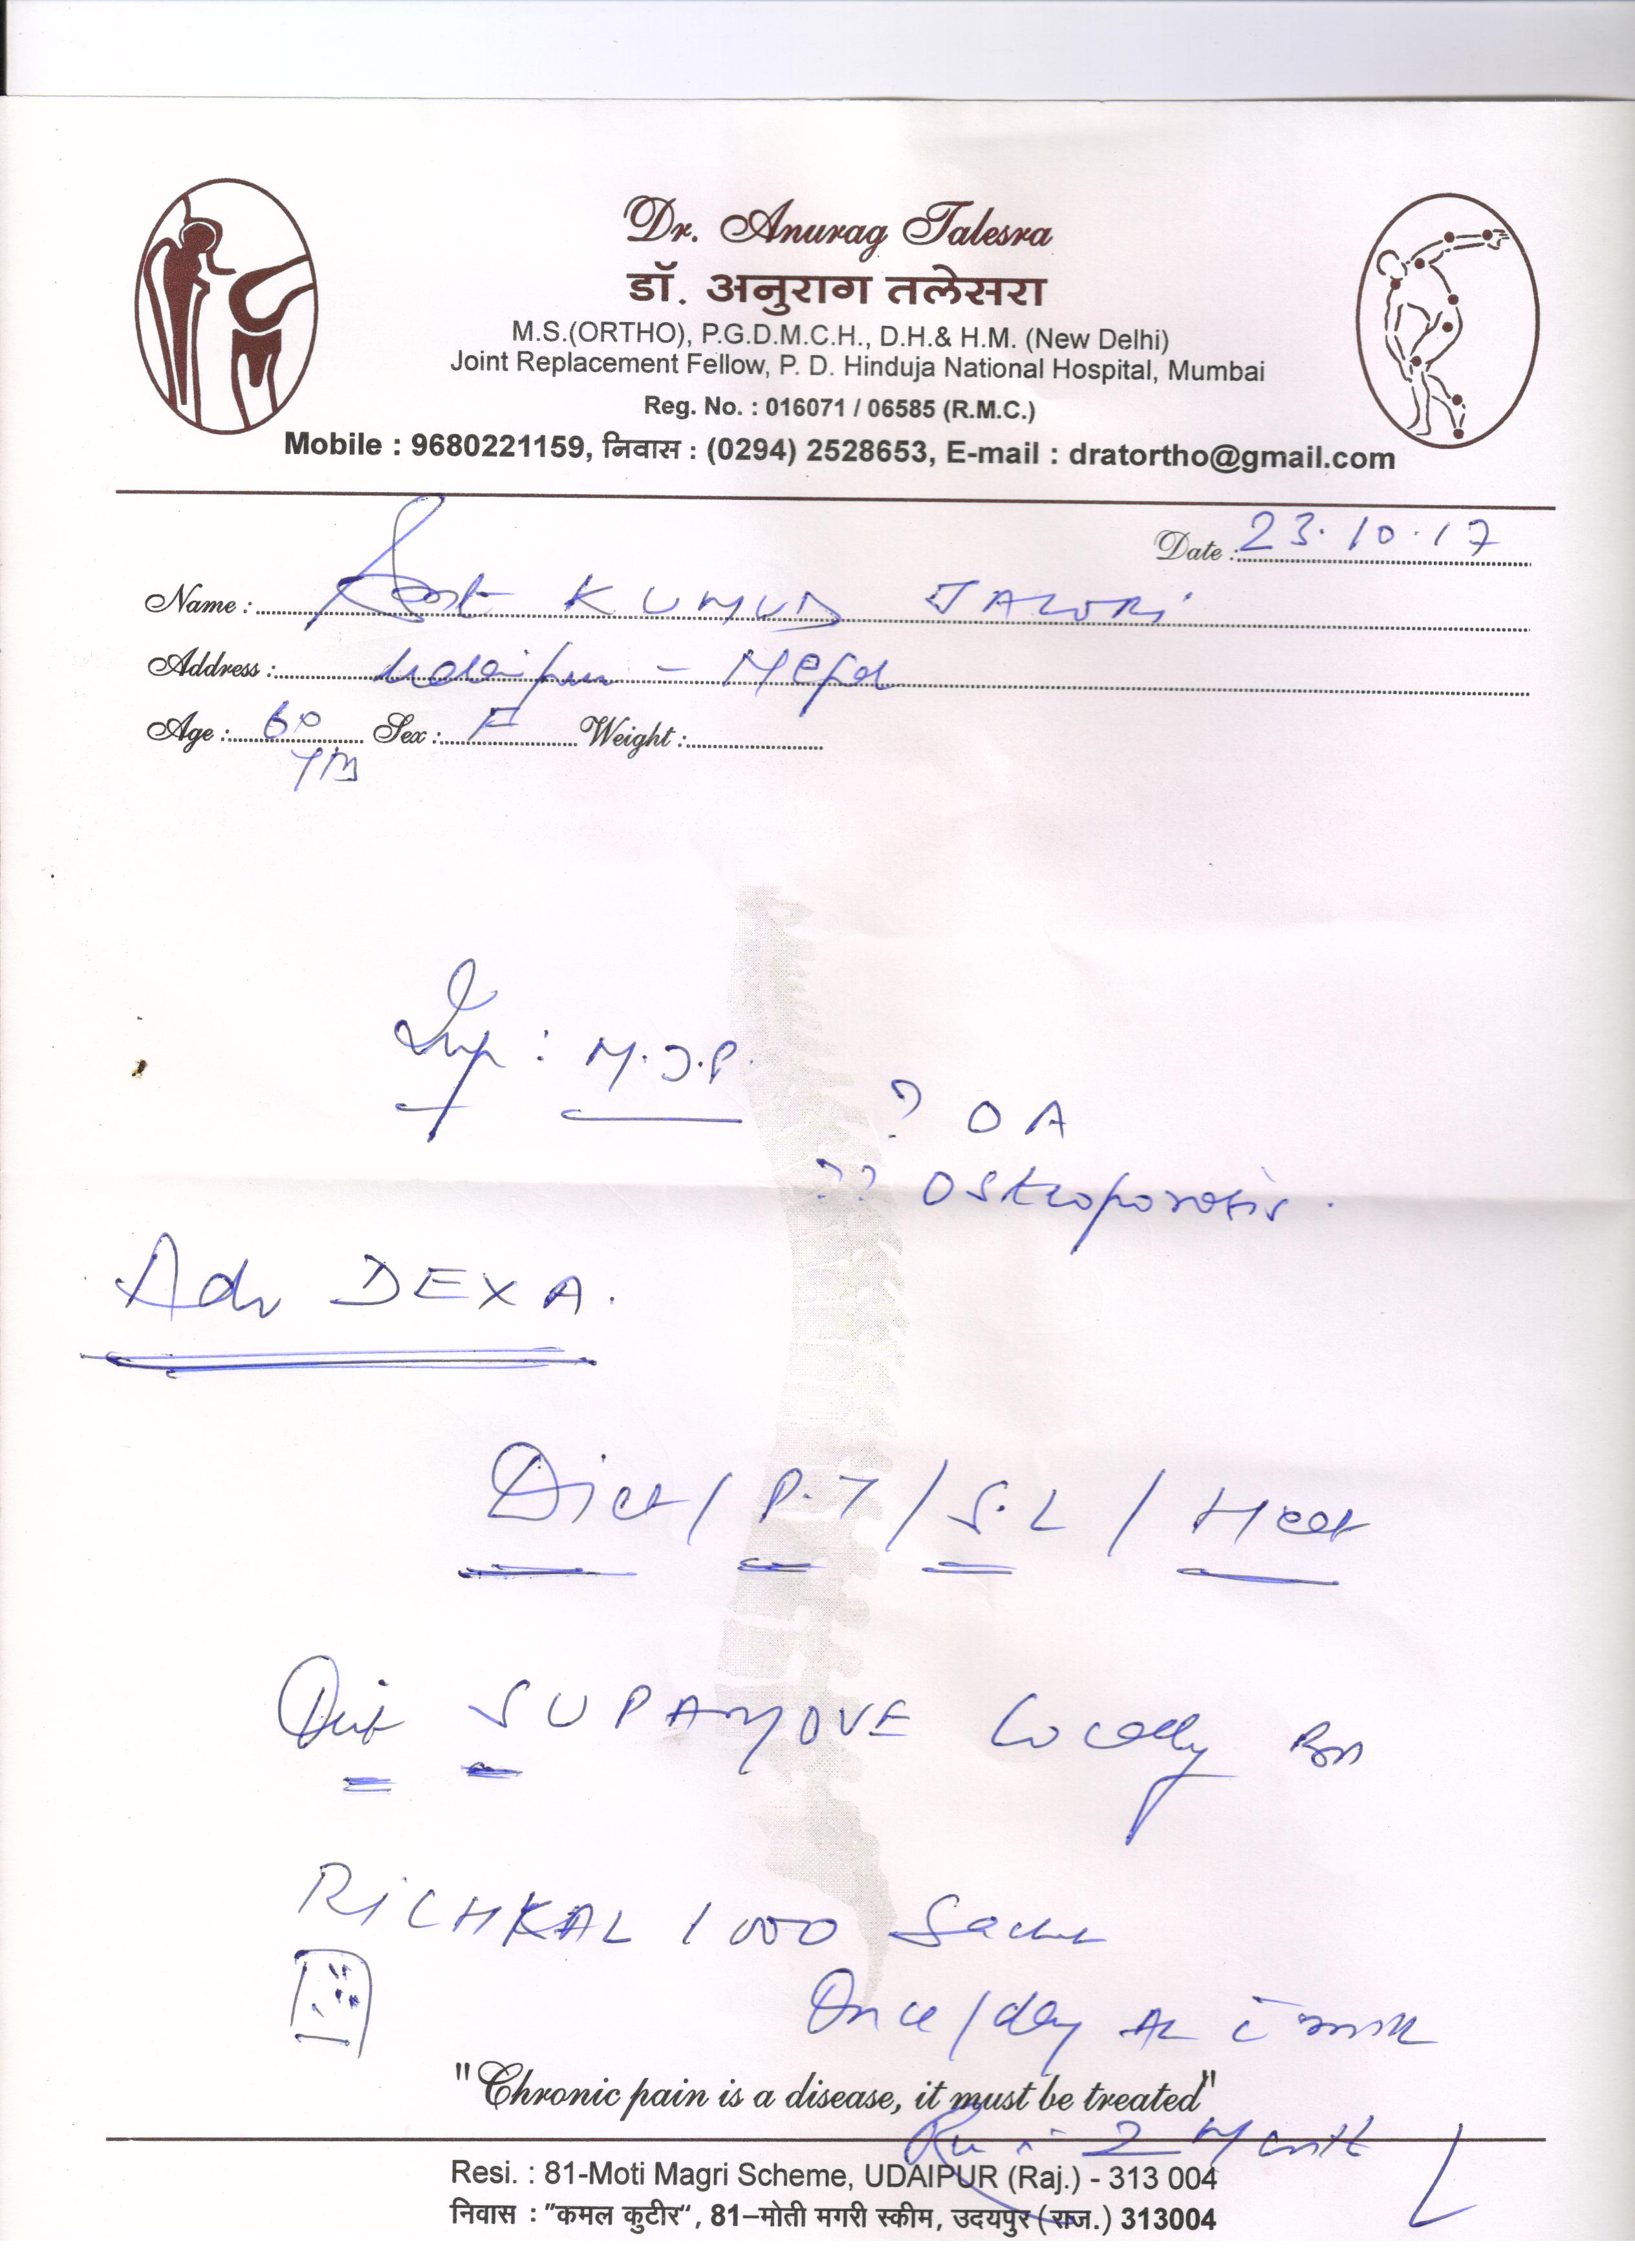 Dr. Anurag Talesra
डॉ. अनुराग तलेसरा
M.S.(ORTHO), P.G.D.M.C.H., D.H.& H.M. (New Delhi)
Joint Replacement Fellow, P. D. Hinduja National Hospital, Mumbai
Reg. No. : 016071 / 06585 (R.M.C.)
Mobile : 9680221159, निवास : (0294) 2528653, E-mail : dratortho@gmail.com
Date : 23.10.17
Name : KUMUD
Address : Udaipur -
Age : 60 Sex : F Weight :
Imp : M.J.P.
? OA
?? Osteoporosis.
Adv DEXA.
Diet / P.T / S.L / Heat
SUPAMOVE Locally
RICHKAL 1000 Sachet
Once/day
"Chronic pain is a disease, it must be treated"
2 Month
Resi. : 81-Moti Magri Scheme, UDAIPUR (Raj.) - 313 004
निवास : "कमल कुटीर", 81–मोती मगरी स्कीम, उदयपुर (राज.) 313004